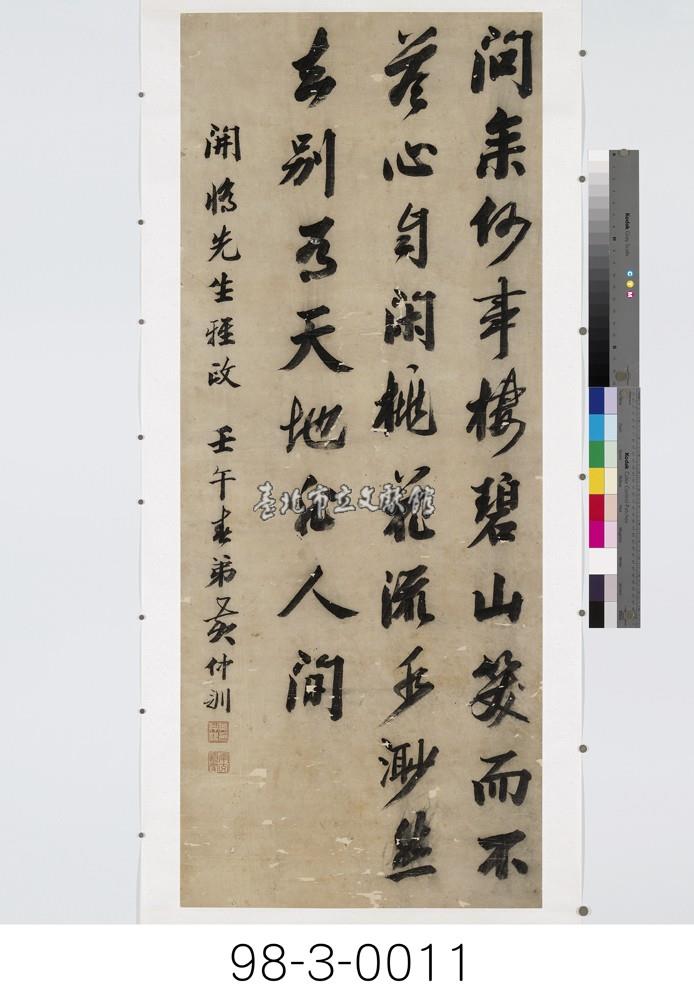 問余何事棲碧山笑而不
答心自閑桃花流水渺然
去別有天地非人間
開先生雅政 壬午春弟黃仲訓
臺北市立文獻館
Kodak Gray Scale
C Y M
Kodak Color Control Patches
98-3-0011